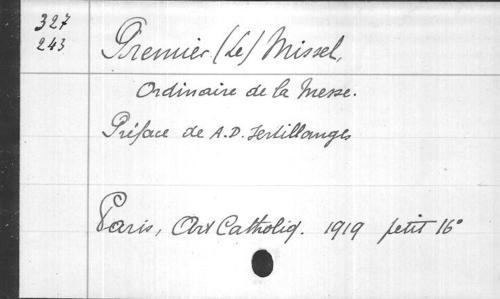 327
243
Premier (Le) Missel,
Ordinaire de la Messe.
Préface de A.D. Sertillanges
Paris, Art Catholiq. 1919 petit 16°